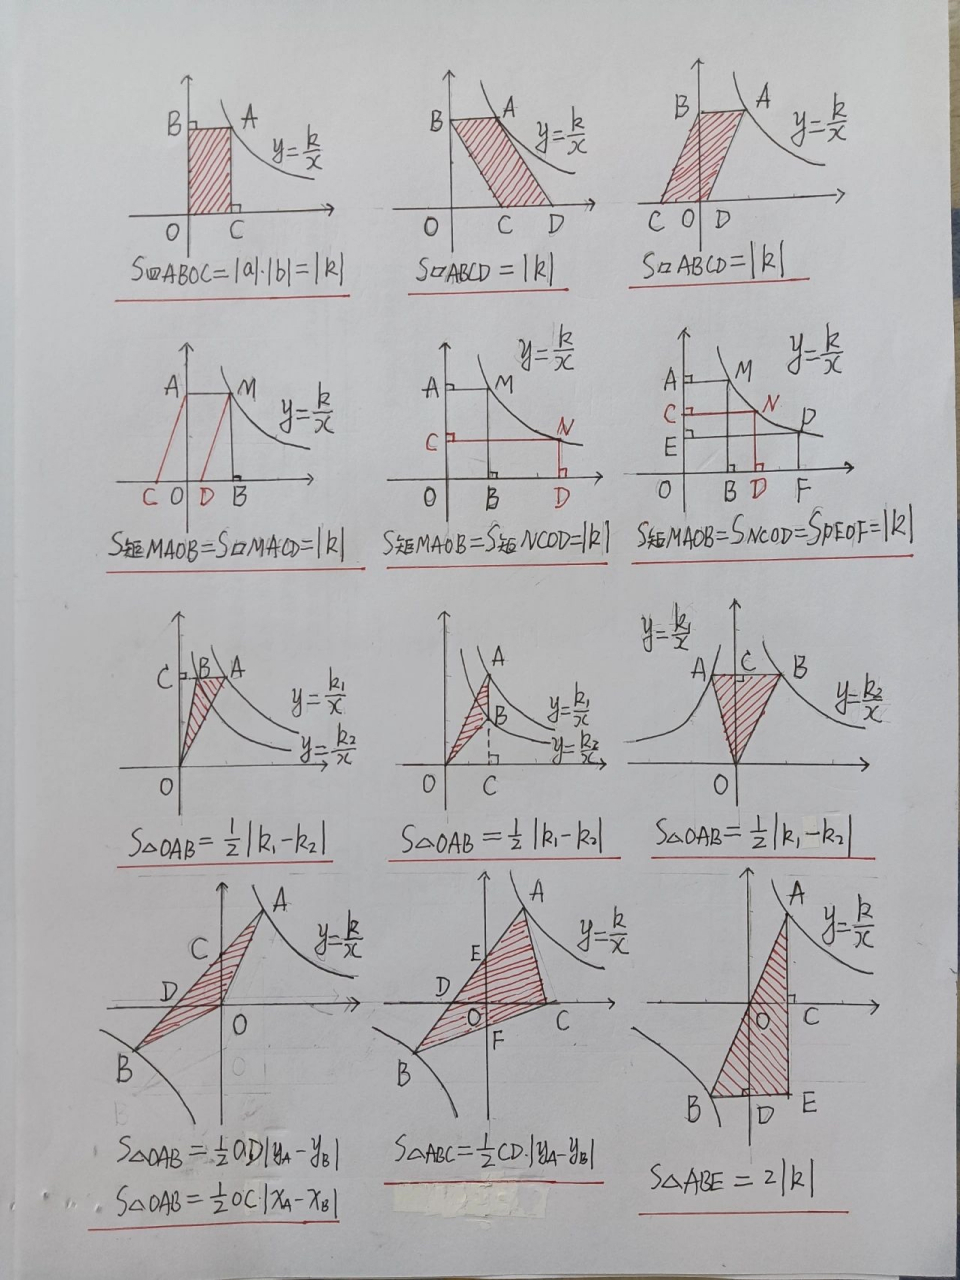 B A y=k/x
O C
S四ABOC=|a|·|b|=|k|
B A y=k/x
O C D
S▱ABCD=|k|
B A y=k/x
C O D
S▱ABCD=|k|
A M y=k/x
C O D B
S矩MAOB=S▱MACD=|k|
y=k/x
A M
C N
O B D
S矩MAOB=S矩NCOD=|k|
y=k/x
A M
C N
E P
O B D F
S矩MAOB=SNCOD=SPEOF=|k|
C B A
y=k₁/x
y=k₂/x
O
S△OAB=½|k₁-k₂|
A
B y=k₁/x
y=k₂/x
O C
S△OAB=½|k₁-k₂|
y=k₁/x
A C B
y=k₂/x
O
S△OAB=½|k₁-k₂|
A
C y=k/x
D
O
B
S△OAB=½OD|yA-yB|
S△OAB=½OC·|xA-xB|
A
E y=k/x
D
O C
F
B
S△ABC=½CD·|yA-yB|
A
y=k/x
O C
B D E
S△ABE=2|k|